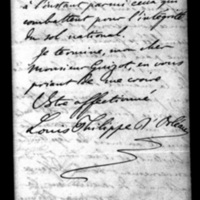 à l'instant parmi ceux qui
combattent pour l'intégrité
du sol national.
Je termine, mon cher
Monsieur Guizot en vous
priant de me croire
Votre affectionné
Louis Philippe d'Orléans